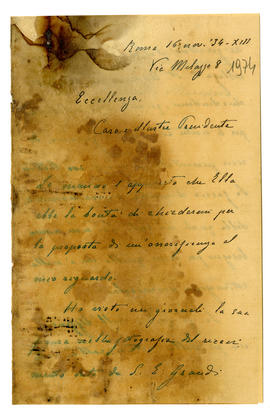 Roma 16 nov. '34-XIII
Via Melazzo 8
1934
Eccellenza,
Caro e Illustre Presidente
Le mando l'appunto che Ella
ebbe la bontà di chiedermi per
la proposta di un'onorificenza al
mio riguardo.
Ho visto nei giornali la sua
nella fotografia del ricevi
mento di S. E. Grandi